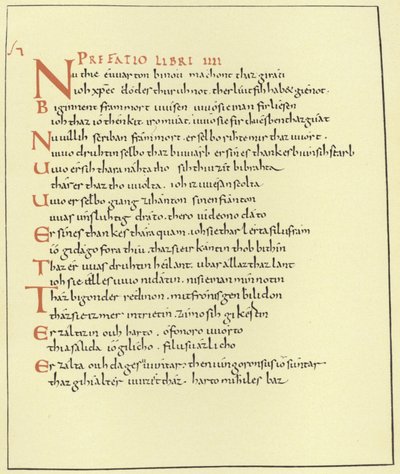 PREFATIO LIBRI IIII
Nu thie euuarton bi noti machont thaz girati
ioh xpes dodes thuruh not ther liut sih habet gieinot.
Biginnent frammort uuisen uuio sie nan firliesen
ioh thaz io thenkit iro muat, uuio sie fir duesben thaz guat
Nu uuillih scriban frammort. er selbo rihte mir thaz uuort.
uuio druhtin selbo thaz biuuarb er sines thankes bi unsih starb
Uuio er sih thara nahta tho sih thiu zit bibrahta
thaz er thaz tho uuolta ioh iz uuesan scolta
Uuio er selbo giang zi hanton sinen fianton
uuas uns luzzig drato. thero uuideono dato
Er sines thankes thara quam. ioh sie thar lerta filu fram
io gidago fora thiu. thaz sie irkantin thoh bithiu
Thaz er uuas druhtin heilant. ubar allaz thaz lant
ioh sie alles uuio ni datin. ni sie nan minnotin
Thaz bigonder redinon. mit fronisgen bilidon
thaz sie iz mer intrietin. zi imo sih
Er zalt in ouh harto. ofonoro uuorto
thia salida io gilicho. filu suazlicho
Er zalta ouh dages uuntar. then iungoron sus io suntar
thaz gihialt er thaz. harto mihiles baz